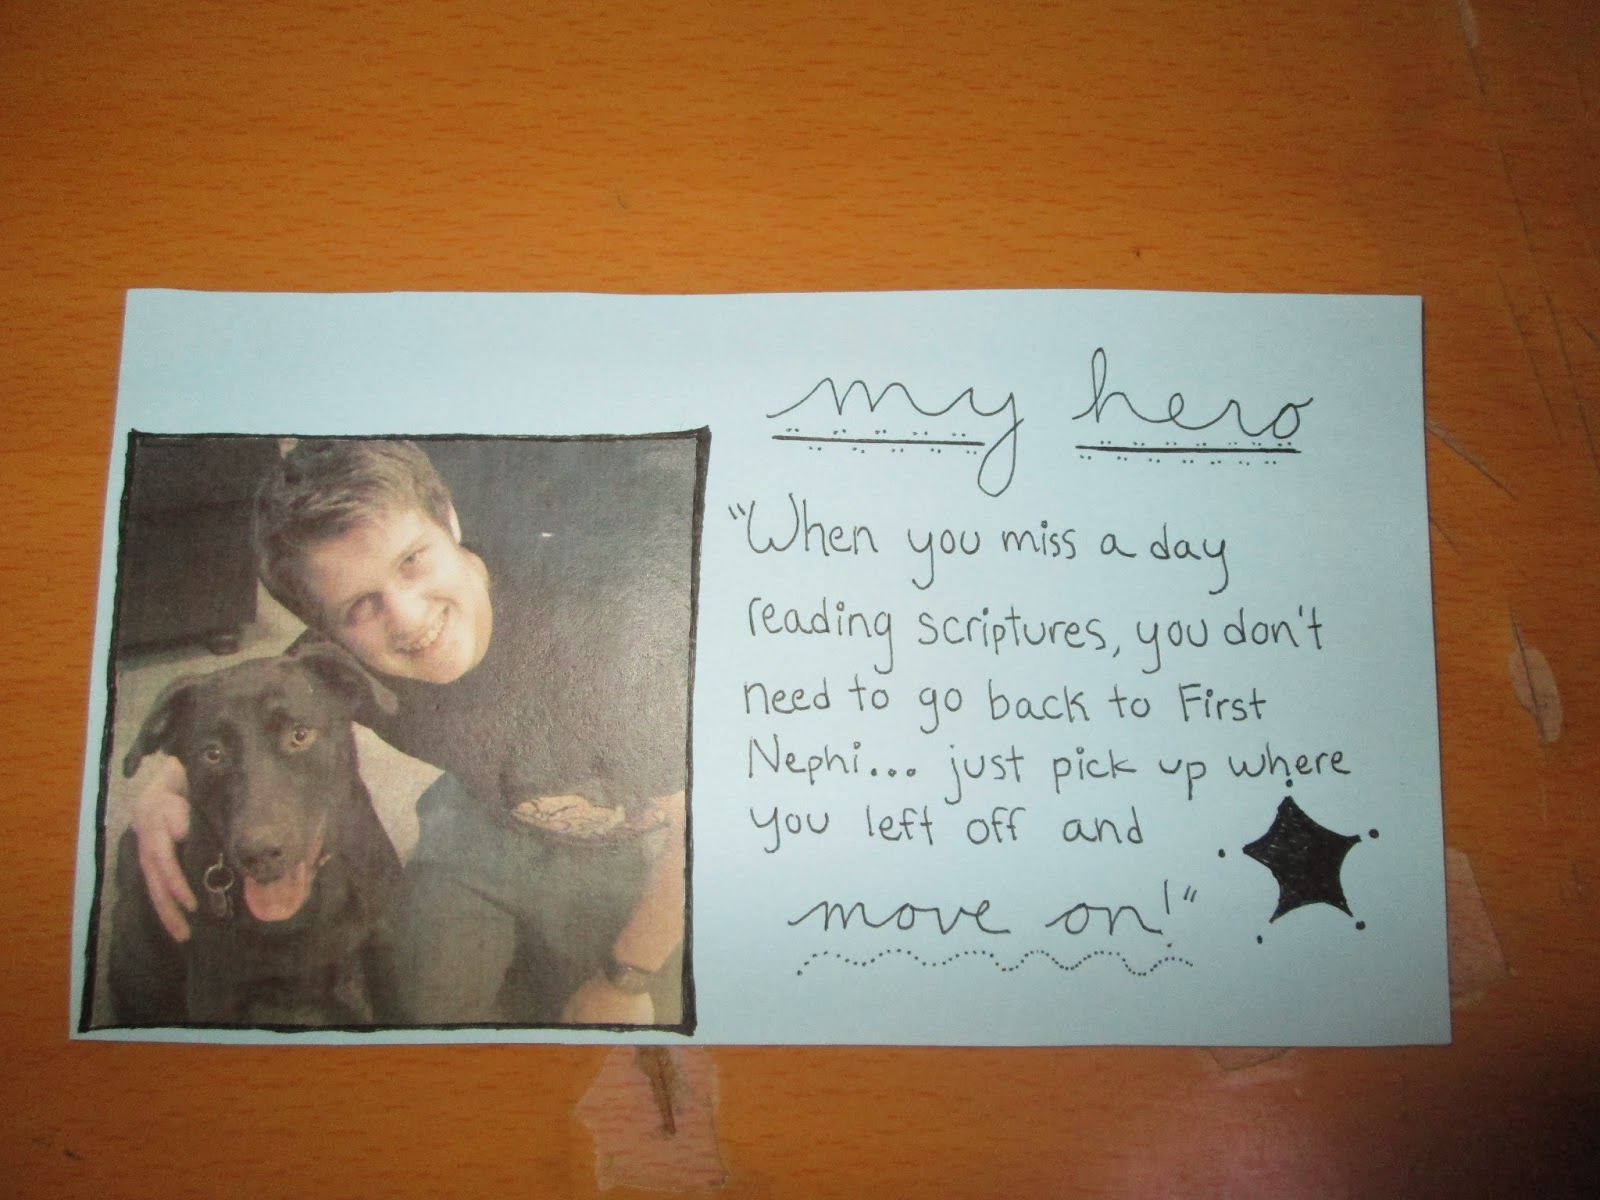 my hero
"When you miss a day
reading scriptures, you don't
need to go back to First
Nephi... just pick up where
you left off and
move on!"